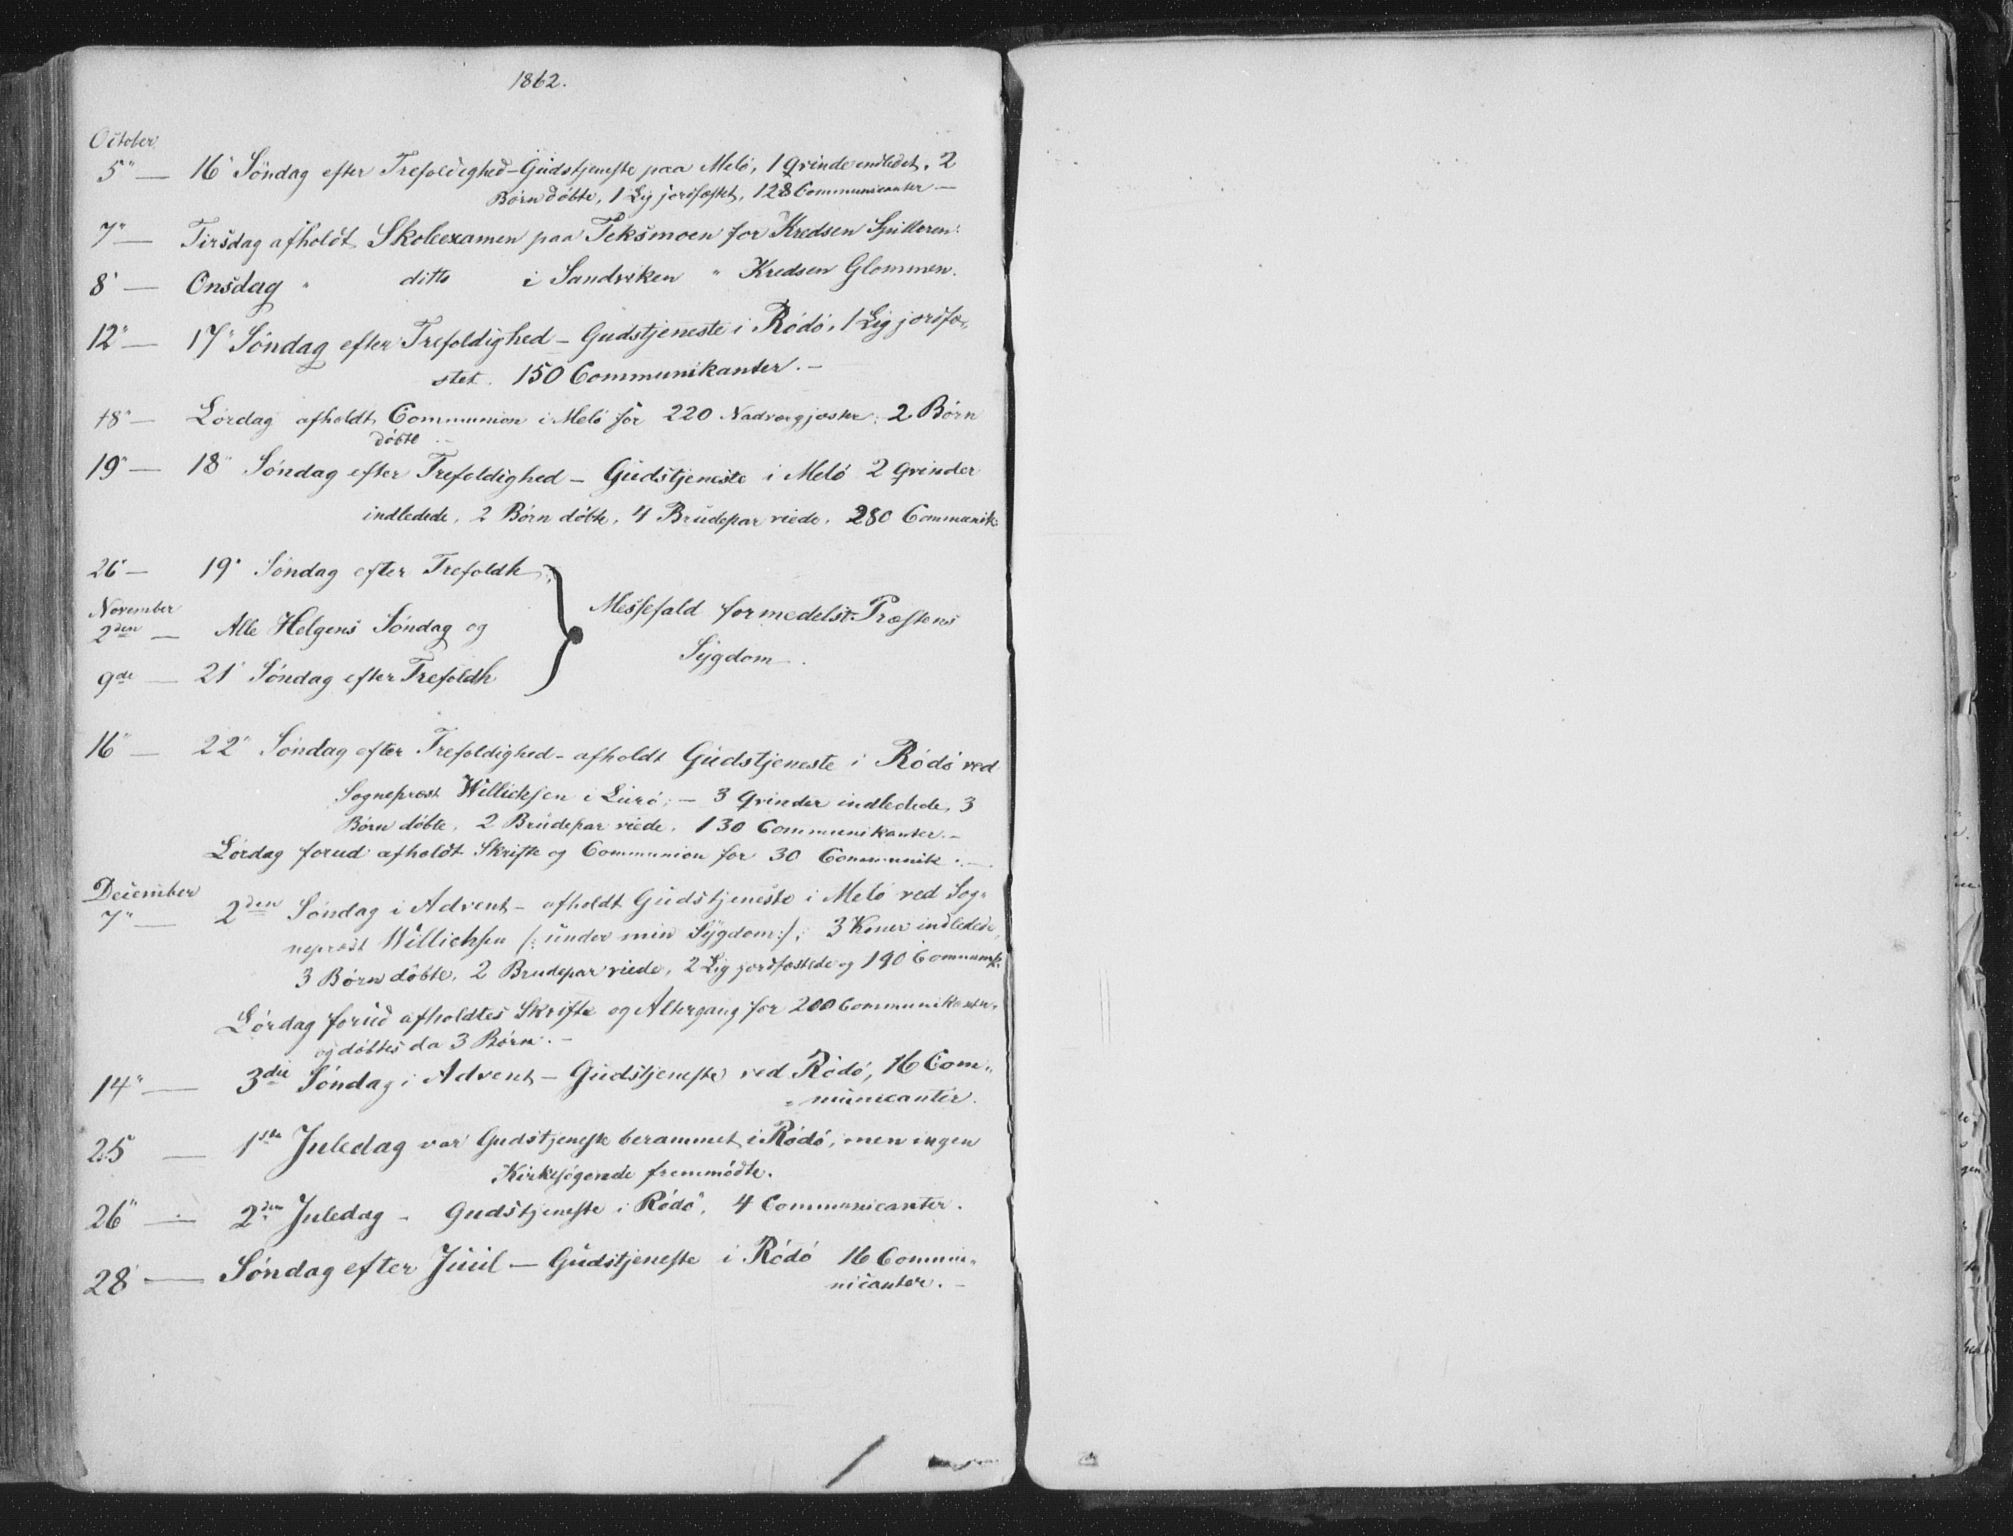 1862.
October
5" — 16' Söndag efter Trefoldighed - Gudstjeneste paa Melö, 1 Qvinde indledet, 2
Börn döbte, 1 Lig jordfæstet, 128 Communicanter —
7" — Tirsdag afholdt Skoleexamen paa Teksmoen for Kredsen Spilderen.
8' — Onsdag " ditto i Sandviken " Kredsen Glommen.
12" — 17" Söndag efter Trefoldighed — Gudstjeneste i Rödö, 1 Lig jordfæ-
stet. 150 Communikanter. —
18" — Lördag afholdt Communion i Melö for 220 Nadvergjæster; 2 Börn
döbte
19" — 18" Söndag efter Trefoldighed — Gudstjeneste i Melö 2 Qvinder
indledede, 2 Börn döbte, 4 Brudepar viede, 280 Communik
26" — 19" Söndag efter Trefoldh
November
2den — Alle Helgens Söndag og
Messefald formedelst Præstens
Sygdom —.
9de — 21' Söndag efter Trefoldh
16" — 22" Söndag efter Trefoldighed - afholdt Gudstjeneste i Rödö ved
Sognepræst Willicksen i Lurö; — 3 Qvinder indledede, 3
Börn döbte, 2 Brudepar viede, 130 Communikanter. —
Lördag forud afholdt Skrifte og Communion for 30 Communik. —
December
7" — 2den Söndag i Advent — afholdt Gudstjeneste i Melö ved Sog-
nepræst Willicksen /: under min Sygdom :/; 3 Koner indledede,
3 Börn döbte, 2 Brudepar viede, 2 Lig jordfæstede og 190 Communik.
Lördag forud afholdtes Skrifte og Altergang for 200 Communikanter
og döbtes da 3 Börn. —
14" — 3die Söndag i Advent — Gudstjeneste ved Rödö, 16 Com-
municanter.
25 — 1ste Juledag var Gudstjeneste berammet i Rödö, men ingen
Kirkesögende fremmödte.
26" — 2den Juledag - Gudstjeneste i Rödö, 4 Communicanter.
28' — Söndag efter Juul — Gudstjeneste i Rödö 16 Commu-
nicanter. —